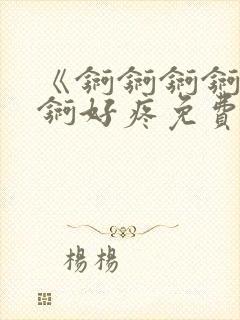 《锕锕锕锕
锕好疼免費
楊楊